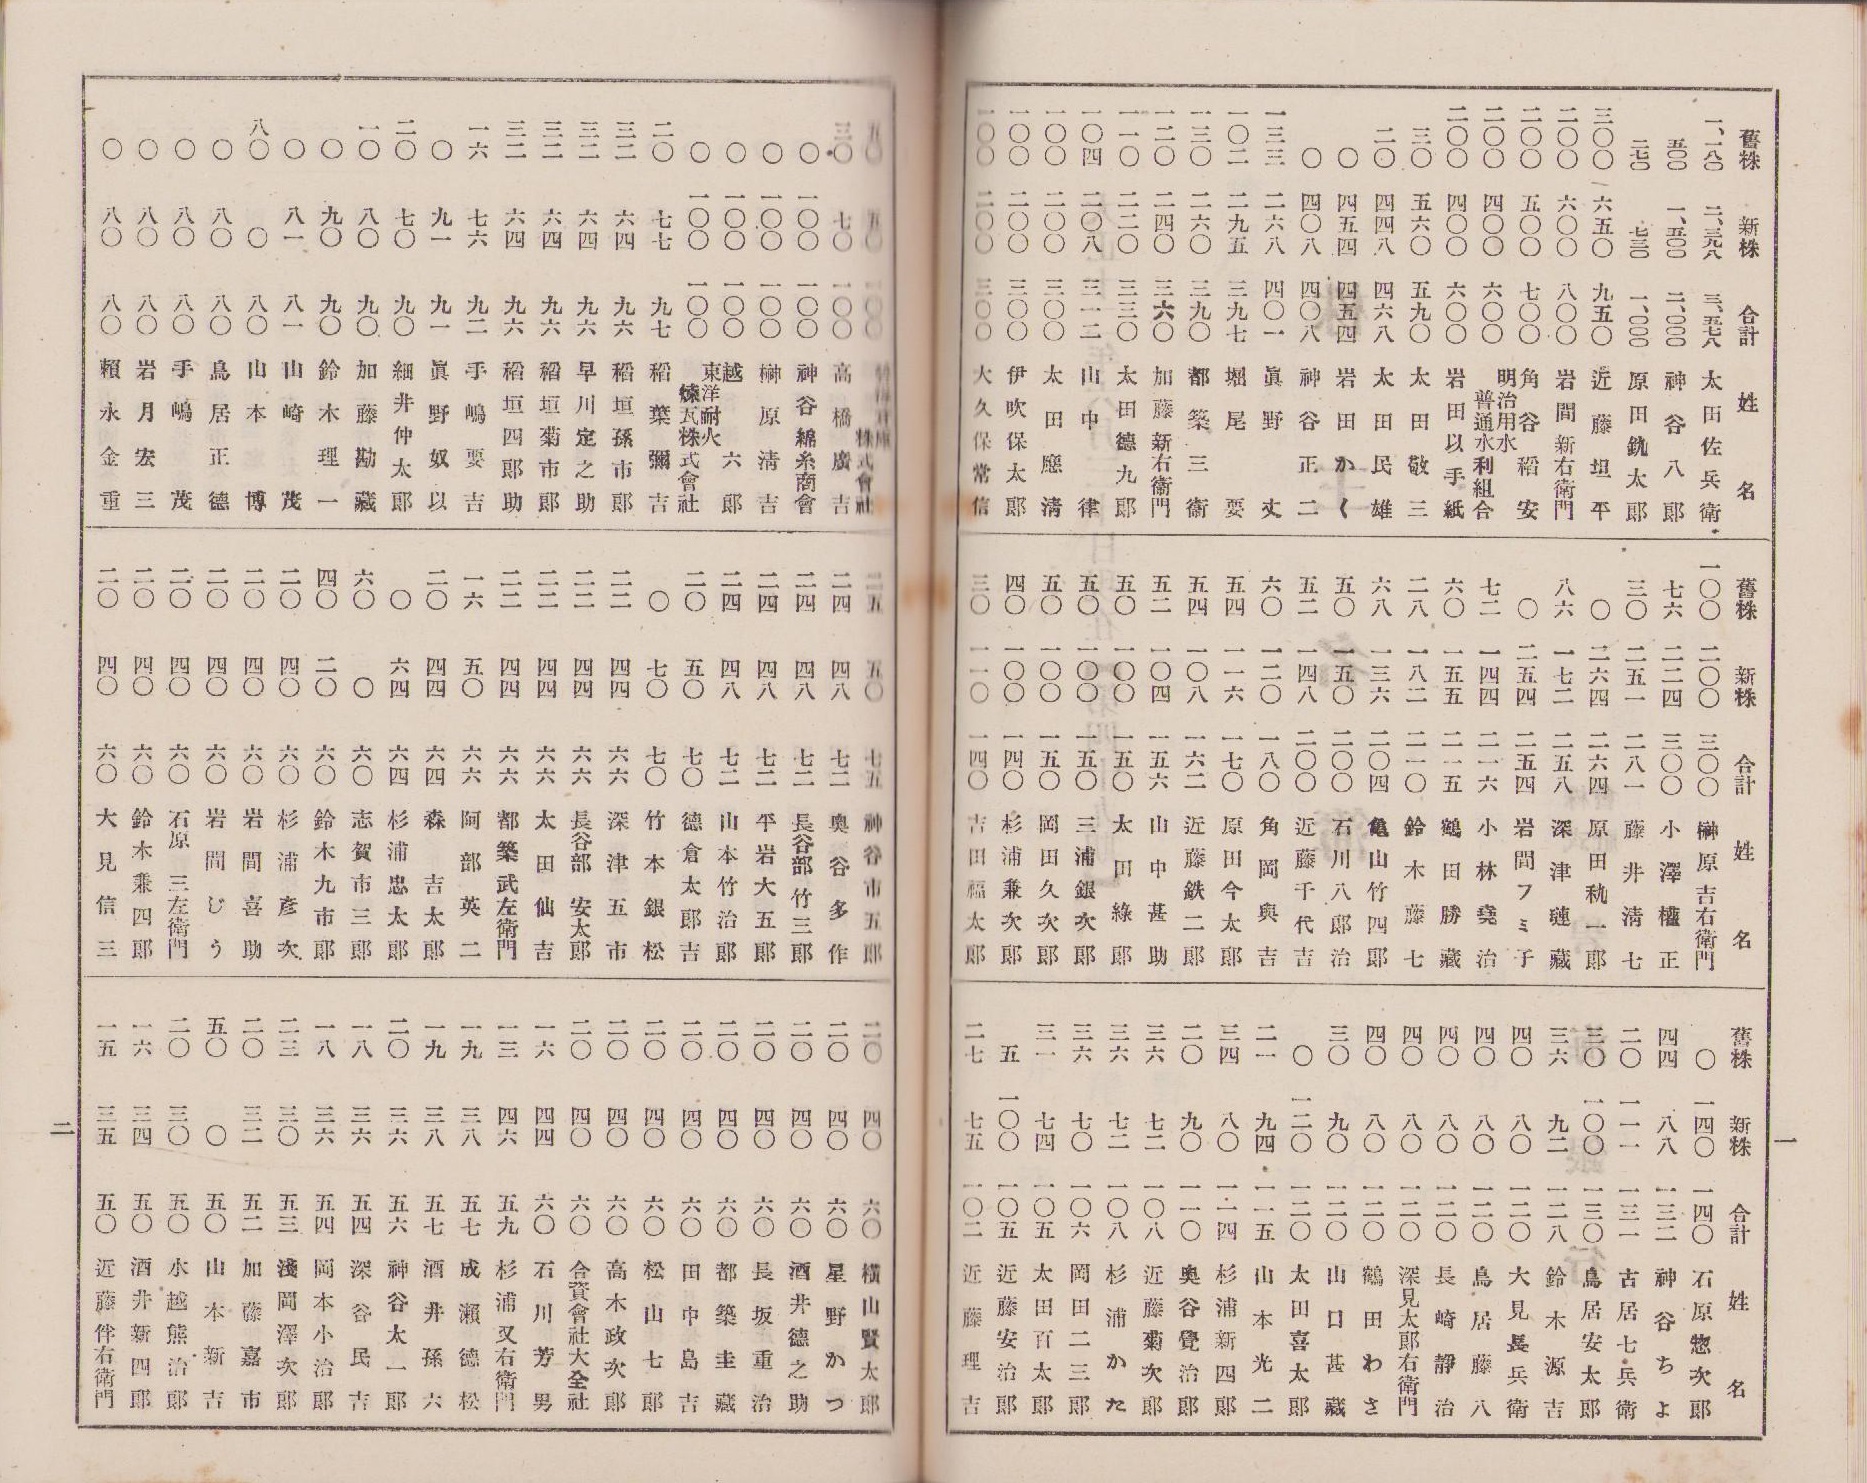 舊株 新株 合計 姓名
一、一八〇 二、三九八 三、五七八 太田佐兵衛
五〇〇 一、五〇〇 二、〇〇〇 神谷八郎
二七〇 七三〇 一、〇〇〇 原田銃太郎
三〇〇 六五〇 九五〇 近藤垣平
二〇〇 六〇〇 八〇〇 岩間新右衛門
二〇〇 五〇〇 七〇〇 角谷稻安
二〇〇 四〇〇 六〇〇 明治用水普通水利組合
二〇〇 四〇〇 六〇〇 岩田以手紙
三〇 五六〇 五九〇 太田敬三
二〇 四四八 四六八 太田民雄
〇 四五四 四五四 岩田かく
〇 四〇八 四〇八 神谷正二
一三三 二六八 四〇一 眞野丈
一〇二 二九五 三九七 堀尾要
一三〇 二六〇 三九〇 都築三衞
一二〇 二四〇 三六〇 加藤新右衞門
一一〇 二二〇 三三〇 太田德九郎
一〇四 二〇八 三一二 山中律
一〇〇 二〇〇 三〇〇 太田應清
一〇〇 二〇〇 三〇〇 伊吹保太郎
一〇〇 二〇〇 三〇〇 大久保常信
舊株 新株 合計 姓名
一〇〇 二〇〇 三〇〇 榊原吉右衛門
七六 二二四 三〇〇 小澤權正
三〇 二五一 二八一 藤井淸七
〇 二六四 二六四 原田秇一郎
八六 一七二 二五八 深津璉藏
〇 二五四 二五四 岩間フミ子
七二 一四四 二一六 小林堯治
六〇 一五五 二一五 鶴田勝藏
二八 一八二 二一〇 鈴木藤七
六八 一三六 二〇四 亀山竹四郎
五〇 一五〇 二〇〇 石川八郎治
五二 一四八 二〇〇 近藤千代吉
六〇 一二〇 一八〇 角岡與吉
五四 一一六 一七〇 原田今太郎
五四 一〇八 一六二 近藤鉄二郎
五二 一〇四 一五六 山中甚助
五〇 一〇〇 一五〇 太田綠郎
五〇 一〇〇 一五〇 三浦銀次郎
五〇 一〇〇 一五〇 岡田久次郎
四〇 一〇〇 一四〇 杉浦兼次郎
三〇 一一〇 一四〇 吉田福太郎
舊株 新株 合計 姓名
〇 一四〇 一四〇 石原惣次郎
四四 八八 一三二 神谷ちよ
二〇 一一一 一三一 古居七兵衛
三〇 一〇〇 一三〇 鳥居安太郎
三六 九二 一二八 鈴木源吉
四〇 八〇 一二〇 大見長兵衛
四〇 八〇 一二〇 鳥居藤八
四〇 八〇 一二〇 長崎靜治
四〇 八〇 一二〇 深見太郎右衛門
四〇 八〇 一二〇 鶴田わさ
三〇 九〇 一二〇 山口甚藏
〇 一二〇 一二〇 太田喜太郎
二一 九四 一一五 山本光二
三四 八〇 一一四 杉浦新四郎
二〇 九〇 一一〇 奥谷覺治郎
三六 七二 一〇八 近藤菊次郎
三六 七二 一〇八 杉浦かた
三六 七〇 一〇六 岡田二三郎
三一 七四 一〇五 太田百太郎
五 一〇〇 一〇五 近藤安治郎
二七 七五 一〇二 近藤理吉
一
五〇 五〇 一〇〇 株式會社
三〇 七〇 一〇〇 高橋廣吉
〇 一〇〇 一〇〇 神谷綿糸商會
〇 一〇〇 一〇〇 榊原清吉
〇 一〇〇 一〇〇 越六郎
〇 一〇〇 一〇〇 東洋耐火煉瓦株式會社
二〇 七七 九七 稻葉彌吉
三二 六四 九六 稻垣孫市郎
三二 六四 九六 早川定之助
三二 六四 九六 稻垣菊市郎
三二 六四 九六 稻垣四郎助
一六 七六 九二 手嶋要吉
〇 九一 九一 眞野奴以
二〇 七〇 九〇 細井仲太郎
一〇 八〇 九〇 加藤勘藏
〇 九〇 九〇 鈴木理一
〇 八一 八一 山崎茂
八〇 〇 八〇 山本博
〇 八〇 八〇 鳥居正德
〇 八〇 八〇 手嶋茂
〇 八〇 八〇 岩月宏三
〇 八〇 八〇 賴永金重
二五 五〇 七五 神谷市五郎
二四 四八 七二 奥谷多作
二四 四八 七二 長谷部竹三郎
二四 四八 七二 平岩大五郎
二四 四八 七二 山本竹治郎
二〇 五〇 七〇 德倉太郎吉
〇 七〇 七〇 竹本銀松
二二 四四 六六 深津五市
二二 四四 六六 長谷部安太郎
二二 四四 六六 太田仙吉
二二 四四 六六 都築武左衛門
一六 五〇 六六 阿部英二
二〇 四四 六四 森吉太郎
〇 六四 六四 杉浦忠太郎
六〇 〇 六〇 志賀市三郎
四〇 二〇 六〇 鈴木九市郎
二〇 四〇 六〇 杉浦彥次
二〇 四〇 六〇 岩間喜助
二〇 四〇 六〇 岩間じう
二〇 四〇 六〇 石原三左衛門
二〇 四〇 六〇 鈴木乗四郎
二〇 四〇 六〇 大見信三
二〇 四〇 六〇 横山賢太郎
二〇 四〇 六〇 星野かつ
二〇 四〇 六〇 酒井德之助
二〇 四〇 六〇 長坂重治
二〇 四〇 六〇 都築圭藏
二〇 四〇 六〇 田中島吉
二〇 四〇 六〇 松山七郎
二〇 四〇 六〇 高木政次郎
二〇 四〇 六〇 合資會社大全社
一六 四四 六〇 石川芳男
一三 四六 五九 杉浦又右衛門
一九 三八 五七 成瀨德松
一九 三八 五七 酒井孫六
二〇 三六 五六 神谷太一郎
一八 三六 五四 深谷民吉
一八 三六 五四 岡本小治郎
二三 三〇 五三 淺岡澤次郎
二〇 三二 五二 加藤嘉市
五〇 〇 五〇 山本新吉
二〇 三〇 五〇 水越熊治郎
一六 三四 五〇 酒井新四郎
一五 三五 五〇 近藤伴右衛門
二